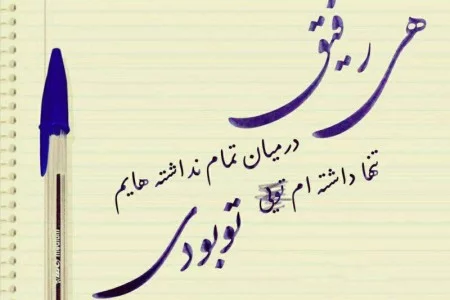 هی رفیق
درمیان تمام نداشته هایم
تنها داشته ام تویی
تو بودی